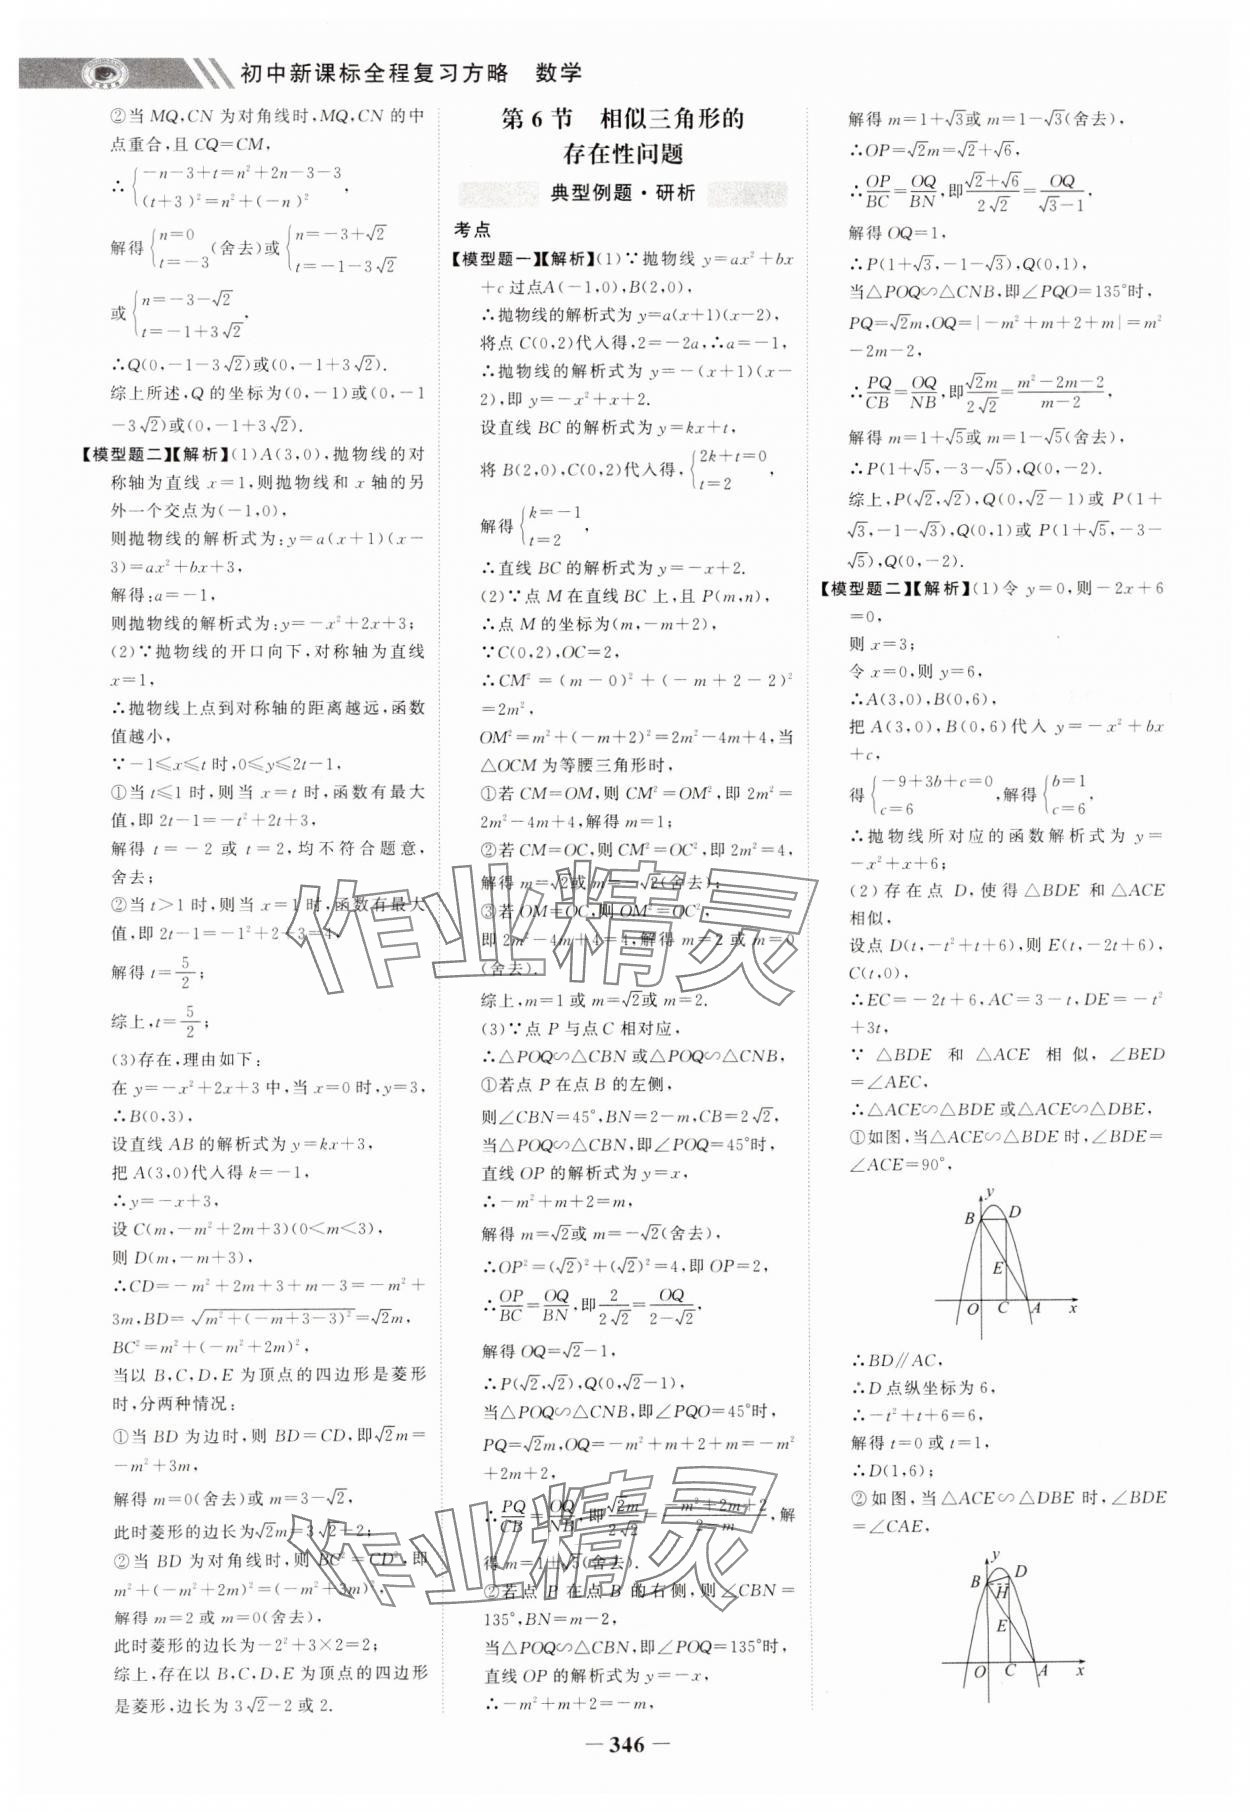 初中新课标全程复习方略　数学
②当 MQ,CN 为对角线时,MQ,CN 的中
点重合,且 CQ=CM,
∴{-n-3+t=n²+2n-3-3
(t+3)²=n²+(-n)²,
解得{n=0
t=-3(舍去)或{n=-3+√2
t=-1-3√2
或{n=-3-√2
t=-1+3√2,
∴Q(0,-1-3√2)或(0,-1+3√2).
综上所述,Q 的坐标为(0,-1)或(0,-1
-3√2)或(0,-1+3√2).
【模型题二】【解析】(1)A(3,0),抛物线的对
称轴为直线 x=1,则抛物线和 x 轴的另
外一个交点为(-1,0),
则抛物线的解析式为:y=a(x+1)(x-
3)=ax²+bx+3,
解得:a=-1,
则抛物线的解析式为:y=-x²+2x+3;
(2)∵抛物线的开口向下,对称轴为直线
x=1,
∴抛物线上点到对称轴的距离越远,函数
值越小,
∵-1≤x≤t 时,0≤y≤2t-1,
①当 t≤1 时,则当 x=t 时,函数有最大
值,即 2t-1=-t²+2t+3,
解得 t=-2 或 t=2,均不符合题意,
舍去;
②当 t>1 时,则当 x=1 时,函数有最大
值,即 2t-1=-1²+2+3=4,
解得 t=5/2;
综上,t=5/2;
(3)存在,理由如下:
在 y=-x²+2x+3 中,当 x=0 时,y=3,
∴B(0,3),
设直线 AB 的解析式为 y=kx+3,
把 A(3,0)代入得 k=-1,
∴y=-x+3,
设 C(m,-m²+2m+3)(0<m<3),
则 D(m,-m+3),
∴CD=-m²+2m+3+m-3=-m²+
3m,BD=√(m²+(-m+3-3)²)=√2m,
BC²=m²+(-m²+2m)²,
当以 B,C,D,E 为顶点的四边形是菱形
时,分两种情况:
①当 BD 为边时,则 BD=CD,即√2m=
-m²+3m,
解得 m=0(舍去)或 m=3-√2,
此时菱形的边长为√2m=3√2-2;
②当 BD 为对角线时,则 BC²=CD²,即
m²+(-m²+2m)²=(-m²+3m)²,
解得 m=2 或 m=0(舍去),
此时菱形的边长为-2²+3×2=2;
综上,存在以 B,C,D,E 为顶点的四边形
是菱形,边长为 3√2-2 或 2.
第 6 节　相似三角形的
存在性问题
典型例题·研析
考点
【模型题一】【解析】(1)∵抛物线 y=ax²+bx
+c 过点A(-1,0),B(2,0),
∴抛物线的解析式为 y=a(x+1)(x-2),
将点 C(0,2)代入得,2=-2a,∴a=-1,
∴抛物线的解析式为 y=-(x+1)(x-
2),即 y=-x²+x+2.
设直线 BC 的解析式为 y=kx+t,
将 B(2,0),C(0,2)代入得,{2k+t=0
t=2
解得{k=-1
t=2,
∴直线 BC 的解析式为 y=-x+2.
(2)∵点 M 在直线 BC 上,且 P(m,n),
∴点 M 的坐标为(m,-m+2),
∵C(0,2),OC=2,
∴CM²=(m-0)²+(-m+2-2)²
=2m²,
OM²=m²+(-m+2)²=2m²-4m+4,当
△OCM 为等腰三角形时,
①若 CM=OM,则 CM²=OM²,即 2m²=
2m²-4m+4,解得 m=1;
②若 CM=OC,则 CM²=OC²,即 2m²=4,
解得 m=√2或 m=-√2(舍去);
③若 OM=OC,则 OM²=OC²,
即 2m²-4m+4=4,解得 m=2 或 m=0
(舍去).
综上,m=1 或 m=√2或 m=2.
(3)∵点 P 与点 C 相对应,
∴△POQ∽△CBN 或△POQ∽△CNB,
①若点 P 在点 B 的左侧,
则∠CBN=45°,BN=2-m,CB=2√2,
当△POQ∽△CBN,即∠POQ=45°时,
直线 OP 的解析式为 y=x,
∴-m²+m+2=m,
解得 m=√2或 m=-√2(舍去),
∴OP²=(√2)²+(√2)²=4,即 OP=2,
∴OP/BC=OQ/BN,即2/2√2=OQ/2-√2,
解得 OQ=√2-1,
∴P(√2,√2),Q(0,√2-1),
当△POQ∽△CNB,即∠PQO=45°时,
PQ=√2m,OQ=-m²+m+2+m=-m²
+2m+2,
∴PQ/CB=OQ/NB,即√2m/2√2=-m²+2m+2/2-m,解
得 m=1±√5(舍去).
②若点 P 在点 B 的右侧,则∠CBN=
135°,BN=m-2,
当△POQ∽△CBN,即∠POQ=135°时,
直线 OP 的解析式为 y=-x,
∴-m²+m+2=-m,
解得 m=1+√3或 m=1-√3(舍去),
∴OP=√2m=√2+√6,
∴OP/BC=OQ/BN,即√2+√6/2√2=OQ/√3-1,
解得 OQ=1,
∴P(1+√3,-1-√3),Q(0,1),
当△POQ∽△CNB,即∠PQO=135°时,
PQ=√2m,OQ=|-m²+m+2+m|=m²
-2m-2,
∴PQ/CB=OQ/NB,即√2m/2√2=m²-2m-2/m-2,
解得 m=1+√5或 m=1-√5(舍去),
∴P(1+√5,-3-√5),Q(0,-2).
综上,P(√2,√2),Q(0,√2-1)或 P(1+
√3,-1-√3),Q(0,1)或 P(1+√5,-3-
√5),Q(0,-2).
【模型题二】【解析】(1)令 y=0,则-2x+6
=0,
则 x=3;
令 x=0,则 y=6,
∴A(3,0),B(0,6),
把 A(3,0),B(0,6)代入 y=-x²+bx
+c,
得{-9+3b+c=0
c=6,解得{b=1
c=6,
∴抛物线所对应的函数解析式为 y=
-x²+x+6;
(2)存在点 D,使得△BDE 和△ACE
相似,
设点 D(t,-t²+t+6),则 E(t,-2t+6),
C(t,0),
∴EC=-2t+6,AC=3-t,DE=-t²
+3t,
∵△BDE 和△ACE 相似,∠BED
=∠AEC,
∴△ACE∽△BDE 或△ACE∽△DBE,
①如图,当△ACE∽△BDE 时,∠BDE=
∠ACE=90°,
y
B D
E
O C A x
∴BD∥AC,
∴D 点纵坐标为 6,
∴-t²+t+6=6,
解得 t=0 或 t=1,
∴D(1,6);
②如图,当△ACE∽△DBE 时,∠BDE
=∠CAE,
y
B D
H
E
O C A x
作业精灵
作业精灵
— 346 —